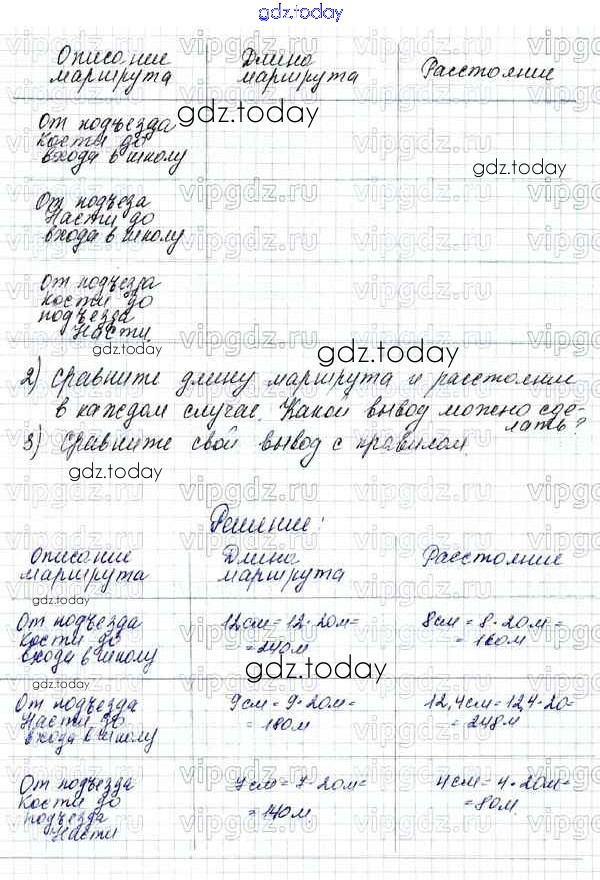 gdz.today
Описание маршрута
Длина маршрута
Расстояние
gdz.today
От подъезда
Кости до
входа в школу
gdz.today
От подъеза
Насти до
входа в школу
От подъезда
Кости до
подъезда
Насти.
gdz.today
gdz.today
2) Сравните длину маршрута и расстояния
в каждом случае. Какой вывод можно сде-
лать?
3) Сравните свой вывод с правилом.
gdz.today
Решение:
Описание маршрута
Длина маршрута
Расстояние
gdz.today
От подъезда
Кости до
входа в школу
12см = 12·20м=
= 240м
8см = 8·20м=
= 160м
gdz.today
От подъезда
Насти до
входа в школу
9см = 9·20м=
= 180м
12,4см=12,4·20=
= 248м
От подъезда
Кости до
подъезда
Насти
7см = 7·20м=
= 140м.
4см = 4·20м=
= 80м.
gdz.today